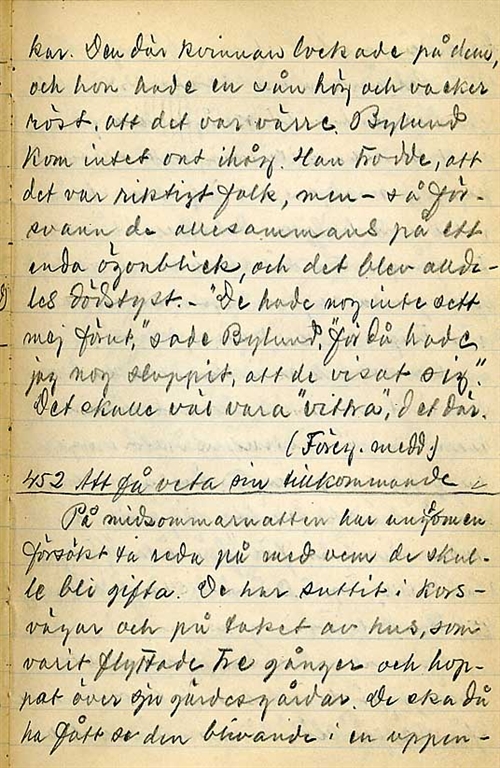 kar. Den där kvinnan lockade på dem,
och hon hade en sån hög och vacker
röst, att det var värre. Bylund
kom intet ont ihåg. Han trodde, att
det var riktigt folk, men – så för-
svann de allesammans på ett
enda ögonblick, och det blev allde-
les dödstyst. – "De hade nog inte sett
mej förut," sade Bylund, "för då hade
jag nog sloppit, att de visat sig."
Det skulle väl vara "vittra", det där.
(Föreg. medd.)
452 Att få veta sin tillkommande
På midsommarnatten har ungdomen
försökt ta reda på med vem de skul-
le bli gifta. De har suttit i kors-
vägar och på taket av hus, som
varit flyttade tre gånger och hop-
pat över sju gärdesgårdar. De ska då
ha fått se den blivande i en uppen-